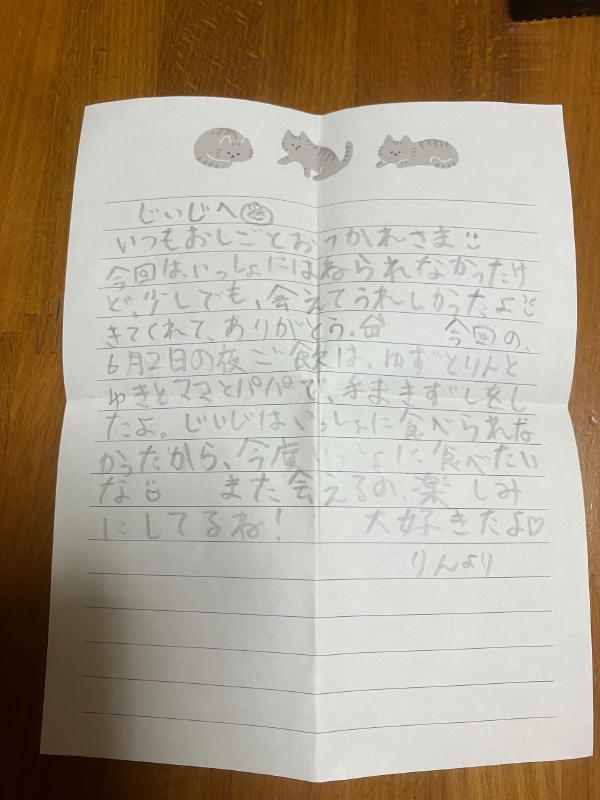 じいじへ
いつもおしごとおつかれさま
今回は、いっしょにはねられなかったけ
ど、少しでも、会えてうれしかったよ
きてくれて、ありがとう。 今回の、
6月2日の夜ご飲は、ゆずとりんと
ゆきとママとパパで、手まきずしをし
たよ。じいじはいっしょに食べられな
かったから、今度いっしょに食べたい
な また会えるの、楽しみ
にしてるね! 大好きだよ♡
りんより